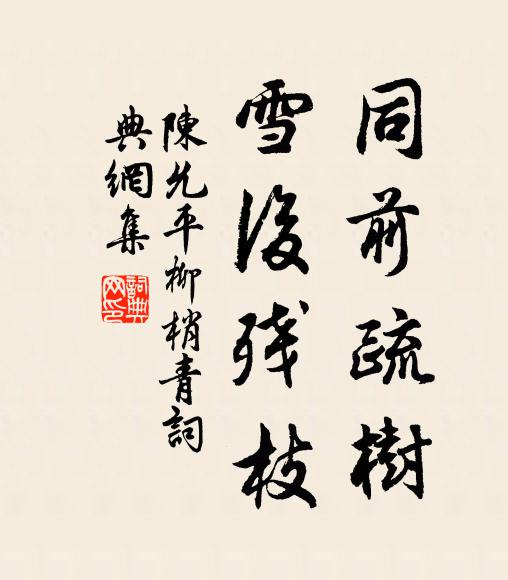 同前疏樹
雪後残枝
陳允平柳梢青詞
典網集
詞典
网印